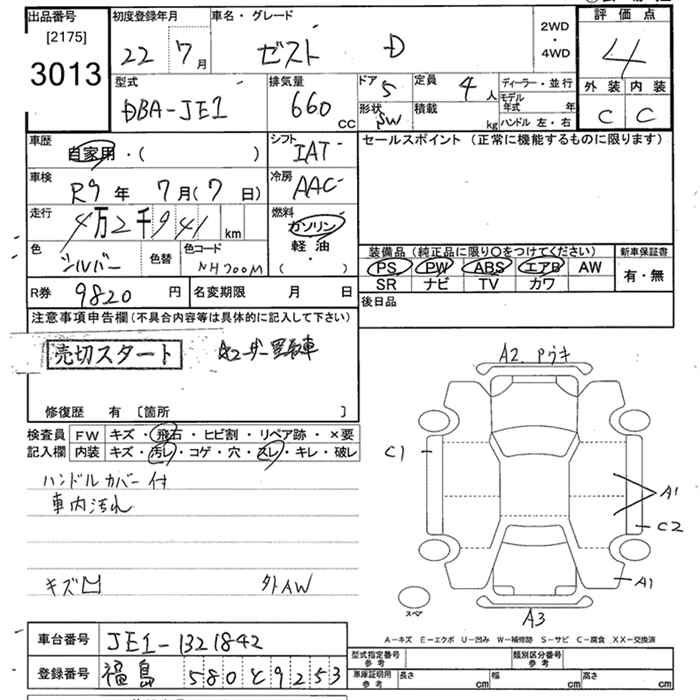 出品番号 初度登録年月 車名・グレード 2WD・4WD 評価点
[2175]
3013 22 7月 ゼスト D 4
型式 排気量 ドア 定員 ディーラー・並行 外装 内装
DBA-JE1 660 CC 5 4人 モデル年式 年 C C
形状 SW 積載 kg ハンドル 左・右
車歴 自家用・( ) シフト IAT セールスポイント (正常に機能するものに限ります)
車検 R9年 7月(7日) 冷房 AAC
走行 4万2千941 km 燃料 ガソリン
軽油
( ・ )
色 シルバー 色替 色コード NH700M
装備品 (純正品に限り○をつけてください) 新車保証書
PS PW ABS エアB AW 有・無
SR ナビ TV カワ
R券 9820円 名変期限 月 日 後日品
注意事項申告欄(不具合内容等は具体的に記入して下さい)
売切スタート
修復歴 有 [箇所 ]
検査員 FW キズ・飛石・ヒビ割・リペア跡・×要
記入欄 内装 キズ・汚レ・コゲ・穴・スレ・キレ・破レ
ハンドルカバー付
車内汚れ
キズ凹 外AW
A2 Pウキ
C1
A1
C2
A1
スペア
A3
A-キズ E-エクボ U-凹み W-補修跡 S-サビ C-腐食 XX-交換済
車台番号 JE1-1321842
登録番号 福島 580 と 9253
型式指定番号 参考 類別区分番号 参考
車庫証明用 参考 長さ cm 幅 cm 高さ cm